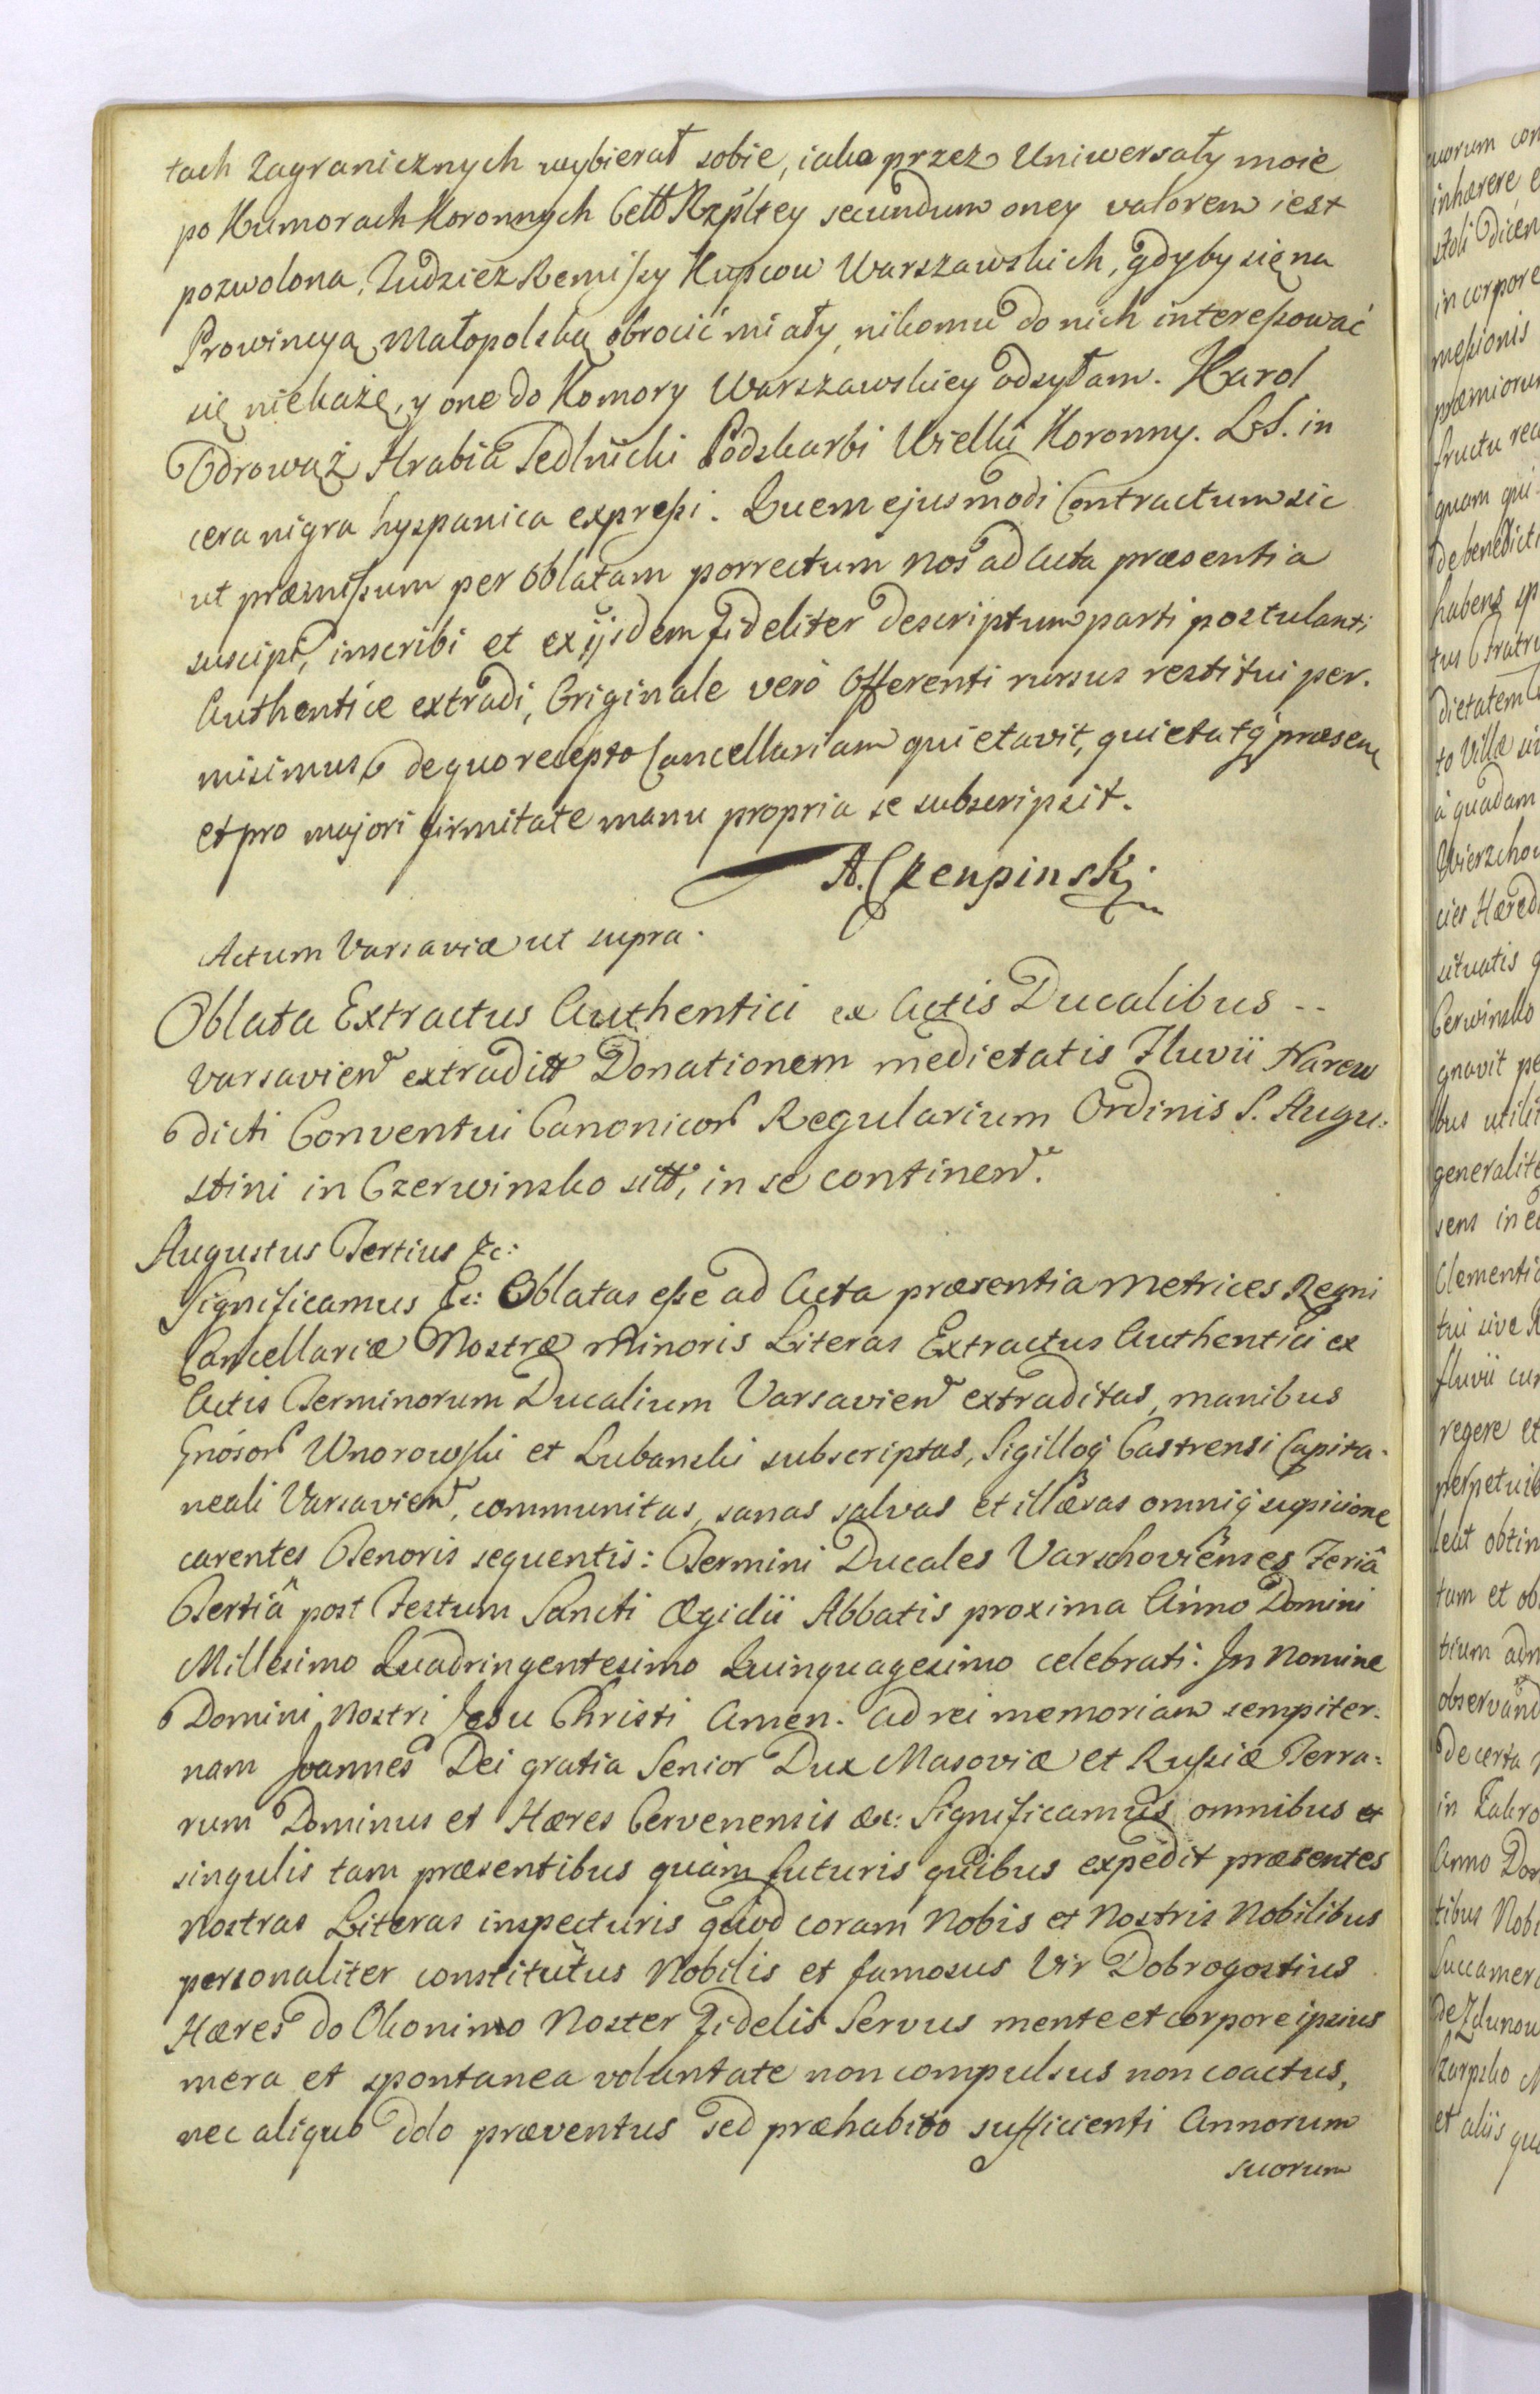 tach Zagranicznych wybierał sobie, iako przez Uniwersały moie
po Kumorach Koronnych Cełł Rzpltey secundum oney valorem iest
pozwolona, Tudziez Remissy Kupcow Warszawskich, gdyby się na
Prowincyą Małopolską obrocić miały, nikomu do nich interessować
się niekażę, y one do Komory Warszawskiey odsyłam. Karol
Odrowąż Hrabia Sedlnicki Podskarbi Wielki Koronny. L.S. in
cera nigra hyspanica expressi. Quem ejusmodi Contractum sic
ut præmissum per Oblatam porrectum Nos ad Acta præsentia
suscipi, inscribi et ex ijsdem fideliter descriptum parti postulanti
Authentice extradi, Originale verò Offerenti rursus restitui per-
misimus, de quo recepto Cancellariam quietavit, quietatq præsen
et pro majori firmitate manu propria se subscripsit.
A. Czenpinski
Actum Varsaviæ ut supra.
Oblata Extractus Authentici ex Actis Ducalibus --
Varsavien extraditt Donationem medietatis Fluvii Narew
dicti Conventui Canonicor Regularium Ordinis S. Augu-
stini in Czerwinsko sitt, in se continen.
Augustus Tertius &c:
Significamus &c: Oblatas esse ad Acta præsentia Metrices Regni
Cancellariæ Nostræ Minoris Literas Extractus Authentici ex
Actis Terminorum Ducalium Varsavien extraditas, manibus
Gnósor Wnorowski et Lubanski subscriptas, Sigilloq Castrensi Capita-
neali Varsavien, communitas, sanas salvas et illæsas omniq supicione
carentes Tenoris sequentis: Termini Ducales Varschovienses Feriâ
Tertiâ post Festum Sancti Ægidii Abbatis proxima Anno Domini
Millesimo Quadringentesimo Quinquagesimo celebrati: In Nomine
Domini Nostri Jesu Christi Amen. Ad rei memoriam sempiter-
nam Joannes Dei gratia Senior Dux Masoviæ et Russiæ Terra-
rum Dominus et Hæres Cervenensis &c: Significamus omnibus et
singulis tam præsentibus quàm futuris quibus expedit præsentes
Nostras Literas inspecturis quòd coram Nobis et Nostris Nobilibus
personaliter constitutus Nobilis et famosus Vir Dobrogostius
Hæres do Okonimo Noster Fidelis Servus mente et corpore ipsius
mera et spontanea voluntate non compulsus non coactus,
nec aliquo dolo præventus sed præhabito sufficienti Annorum
suorum